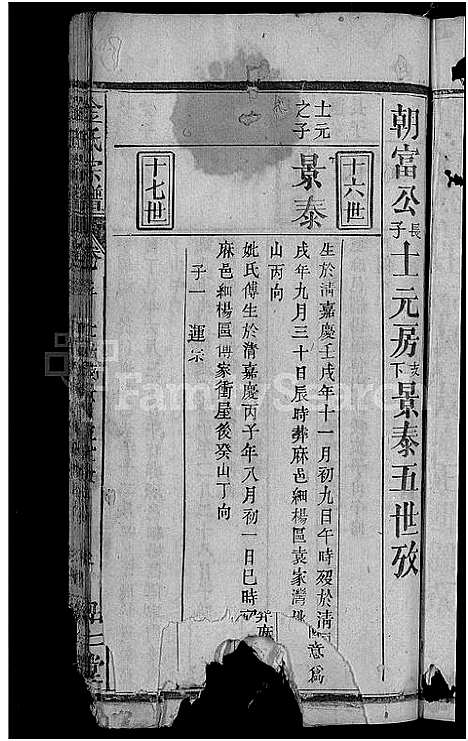 朝富公長子士元房支下景泰五世攷
十六世
士元之子
景泰
生於清嘉慶壬戌年十一月初九日午時殁於清
戌年九月三十日辰時葬麻邑細楊區袁家灣
意為
山丙向
妣氏傅生於清嘉慶丙子年八月初一日巳時
麻邑細楊區傅家衝屋後癸山丁向
子一 運宗
十七世
金氏宗譜
FamilySearch